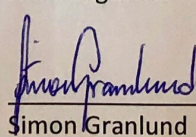 Simon Granlund
Simon Granlund